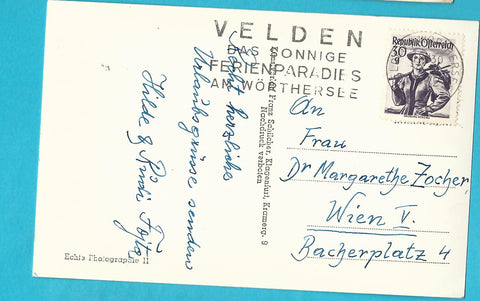 VELDEN
DAS SONNIGE
FERIENPARADIES
AM WÖRTHERSEE
Republik Österreich
30
g
Recht herzliche
Urlaubsgrüsse senden
Hilde & Rudi Fojta
Franz Schilcher, Klagenfurt, Kramerg. 9
Nachdruck verboten
An
Frau
Dr Margarethe Zocher,
Wien V.
Bacherplatz 4
Echte Photographie II